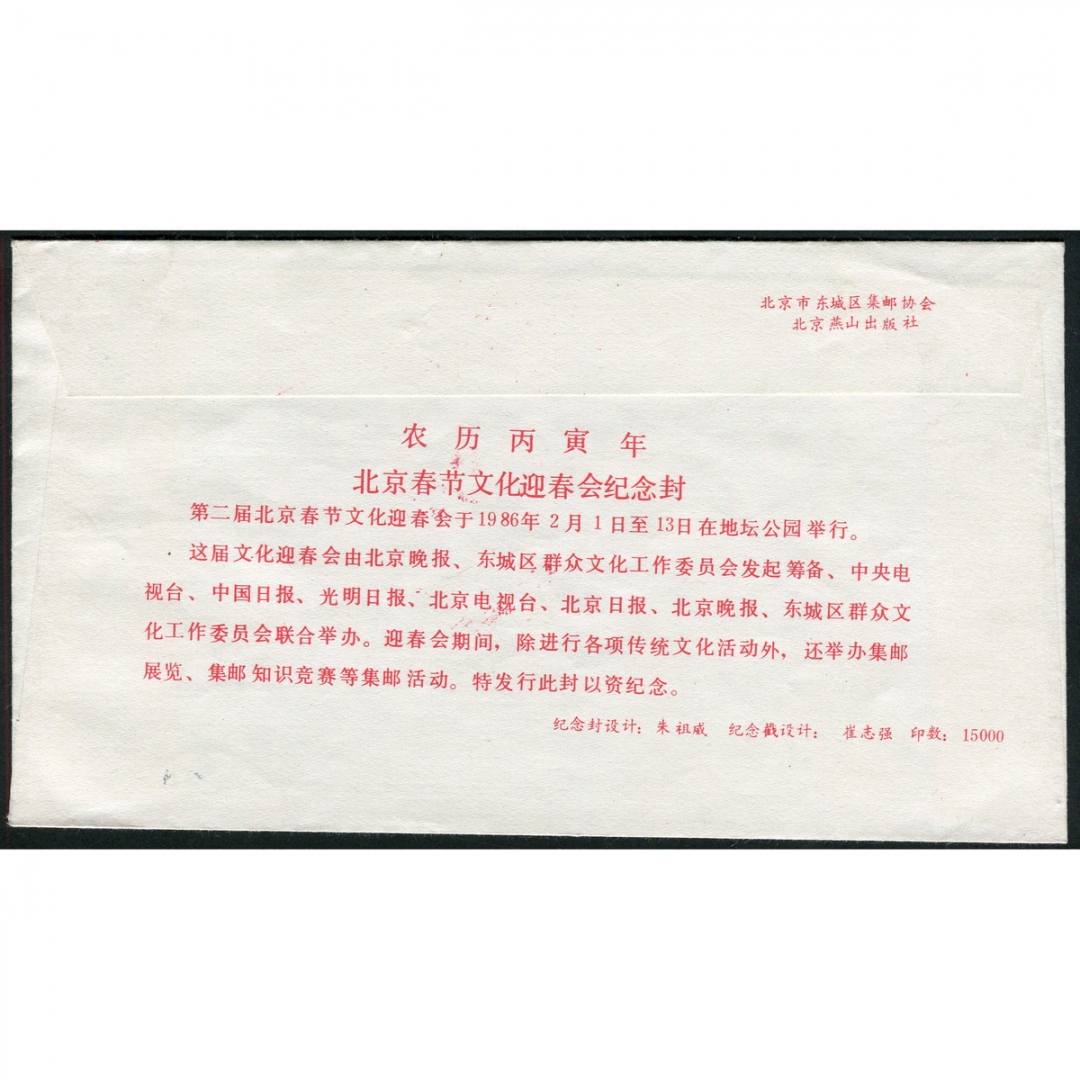 北京市东城区集邮协会
北京燕山出版社
农历丙寅年
北京春节文化迎春会纪念封
第二届北京春节文化迎春会于1986年2月1日至13日在地坛公园举行。
这届文化迎春会由北京晚报、东城区群众文化工作委员会发起筹备、中央电
视台、中国日报、光明日报、北京电视台、北京日报、北京晚报、东城区群众文
化工作委员会联合举办。迎春会期间，除进行各项传统文化活动外，还举办集邮
展览、集邮知识竞赛等集邮活动。特发行此封以资纪念。
纪念封设计：朱祖威 纪念戳设计： 崔志强 印数：15000